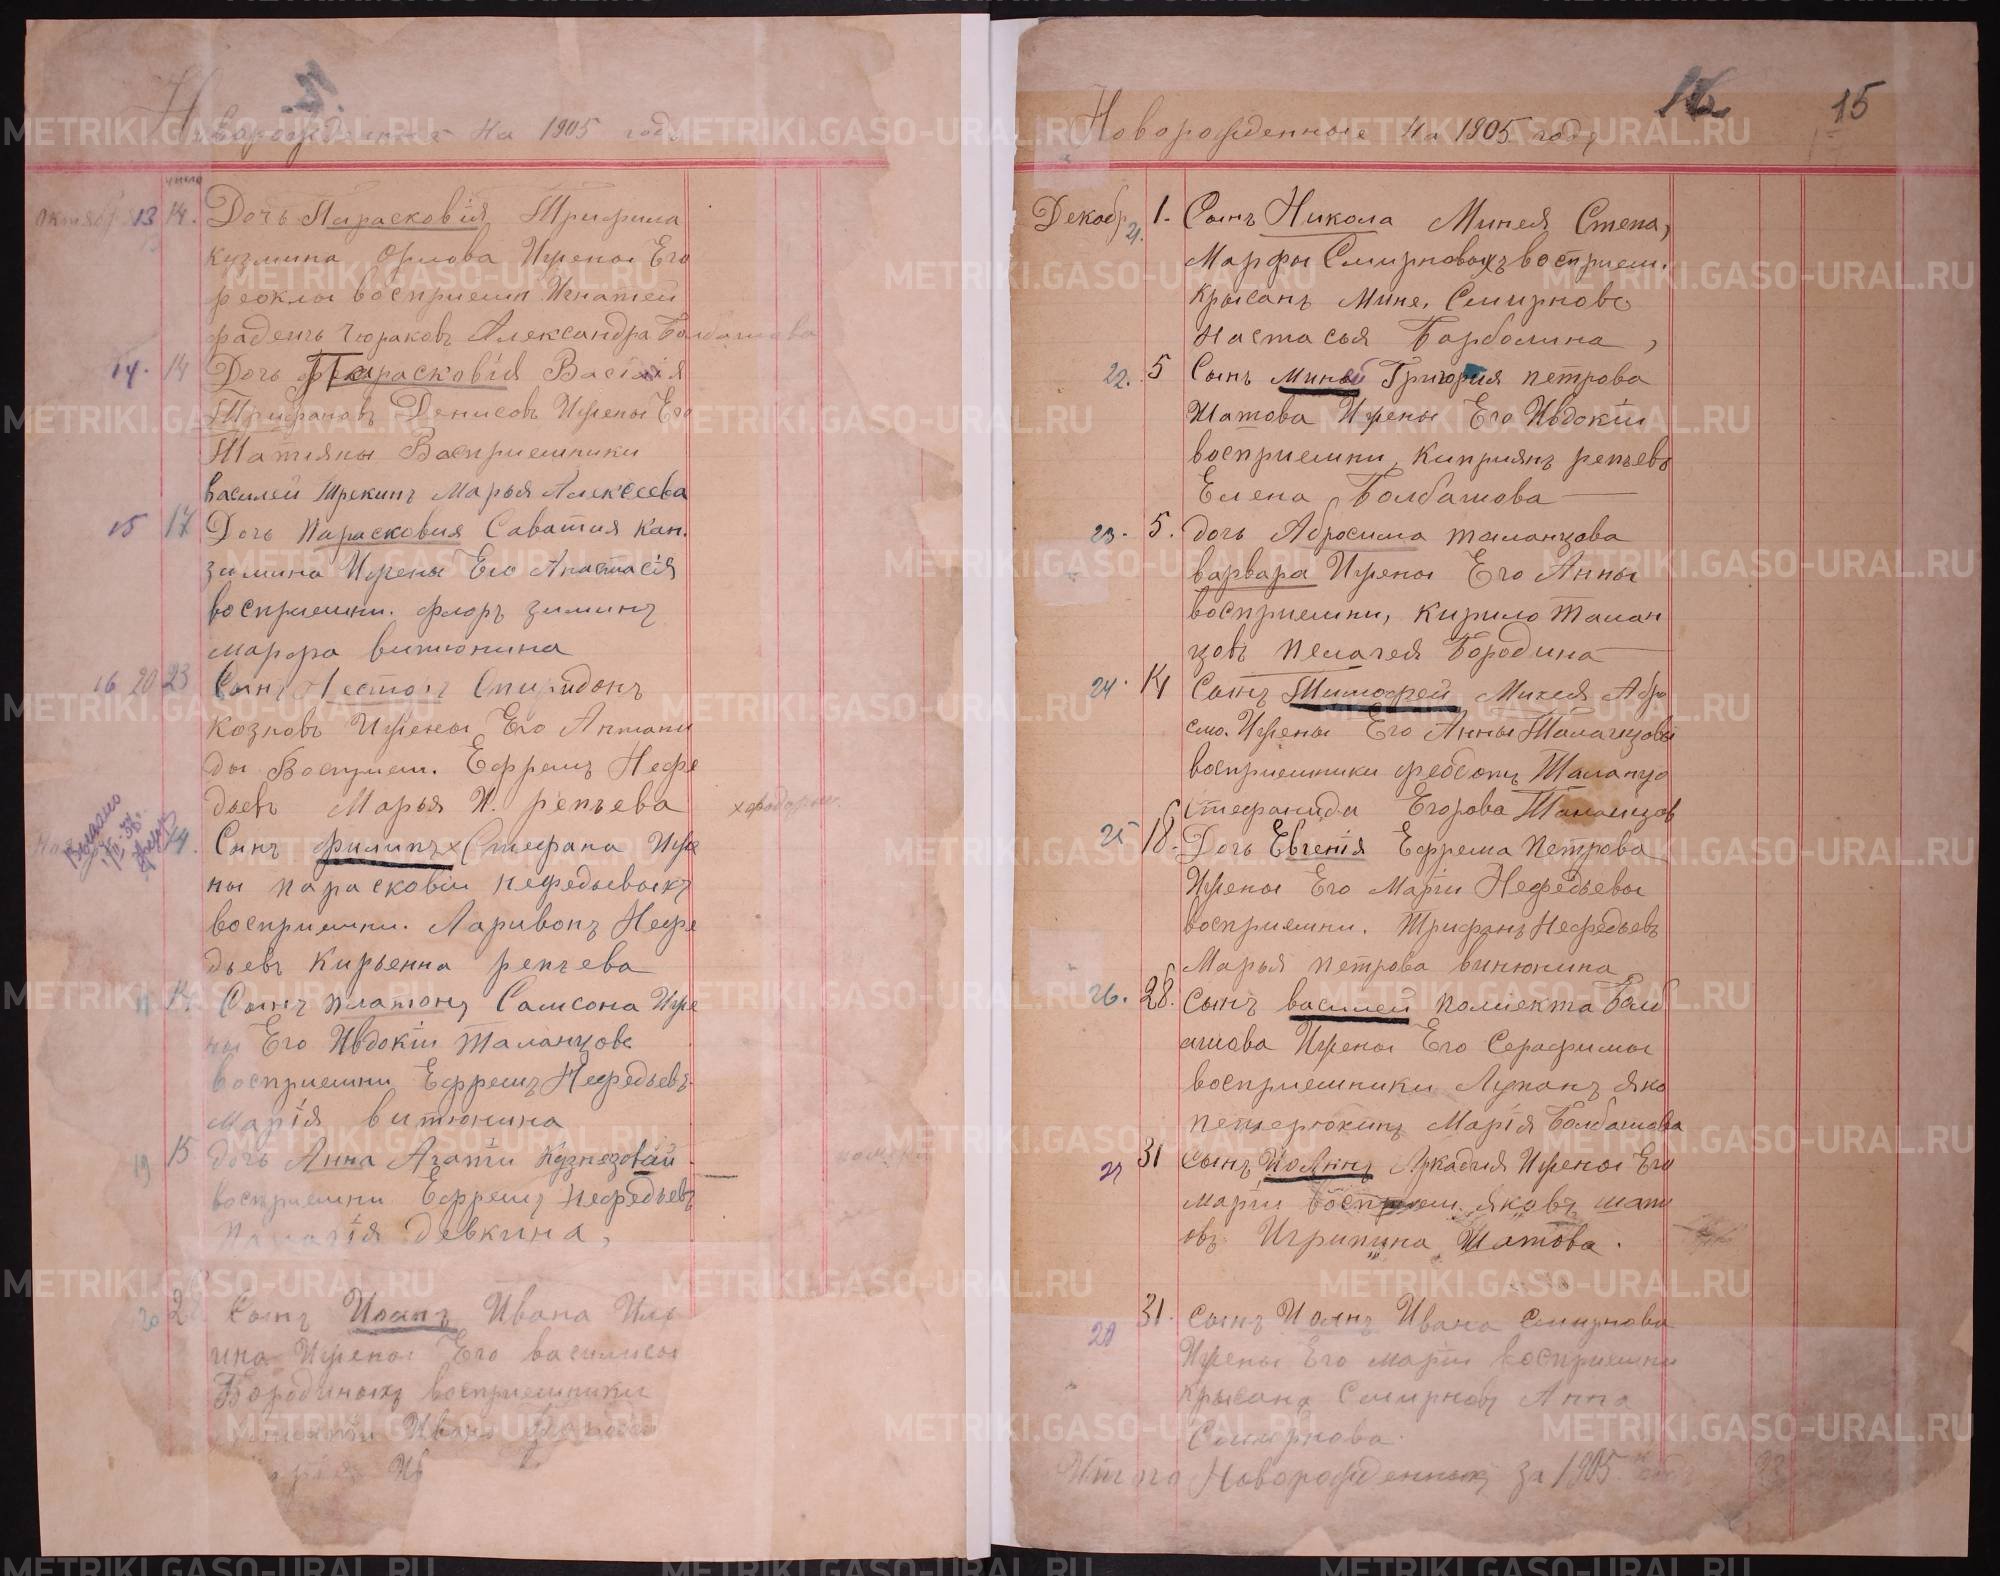 Новорожденные на 1905 года
число
октября 13 14. Дочь Парасковія Трифила
кузмина Орлова Ижены Его
феоклы восприемн Игнатей
фадеичь Чюраковъ Александра Болбашова
14. 14 Дочь Парасковія Васілія
Трифановъ Денисовъ Ижены Его
Татияны Восприемники
василей Трекинъ Марья Алексеева
15 17 Дочь Парасковия Саватия Кан.
зимина Ижены Его Анастасія
восприемни. флоръ зиминъ
марфа витюнина
16 20 23 Сынъ Нестор Спиридонъ
козновъ Ижены Его Антони
ды Восприем. Ефремъ Нефе
дьевъ Марья И. репьева
14. Сынъ филипъ Стефана Иже
ны парасковіи нефедьевыхъ
восприемни. Ларивонъ Нефе
дьевъ Кирьенна репьева
14. Сынъ платонъ Самсона Иже
ны Его Ивдокіи Таланцова
восприемни Ефремъ Нефедьевъ
Марія витюнина
19 15 дочь Анна Агатіи Кузнецовай
восприемни Ефремъ Нефедьевъ
Девкина,
20 2 Сынъ Иоанъ Ивана Иль
ина Ижены Его василисы
Бородиныхъ восприемники
Ивано
15
Новорожденные на 1905 году
Декабр 21. 1. Сынъ Никола Минея Степа,
Марфы Смирновыхъ восприем.
Крысанъ Мине. Смирновъ
Настасья Барболина,
22. 5 Сынъ Миней Григория петрова
Шатова Ижены Его Ивдокіи
восприемни, Киприянъ репьевъ
Елена Болбашова
23. 5. дочь Абросима таланцова
варвара Ижены Его Анны
восприемни, Кирило Талан
цовъ Пелагея Бородина
24. 14 Сынъ Тимофей Михея Абро
смо. Ижены Его Анны Таланцовы
восприемники федсонъ Таланцо
Стефанида Егорова Таланцов
25 18. Дочь Евгенія Ефрема Петрова
Ижены Его Маріи Нефедьевы
восприемни. Трифанъ Нефедьевъ
Марья петрова витюнина
26. 28. сынъ василей полиекта Балб
ашова Ижены Его Серафимы
восприемники Лупанъ яко
петерюхинъ Марія Болбашова
27 31 сынъ Иоаннъ Аркадия Ижены Его
маріи восприем. Яковъ шат
овъ Игрипина Шатова.
28 31. сынъ Иоанъ Ивана Смирнова
Ижены Его маріи восприемни
Крысанъ Смирновъ Анна
Смирнова.
Итого Новорожденныхъ за 1905 год